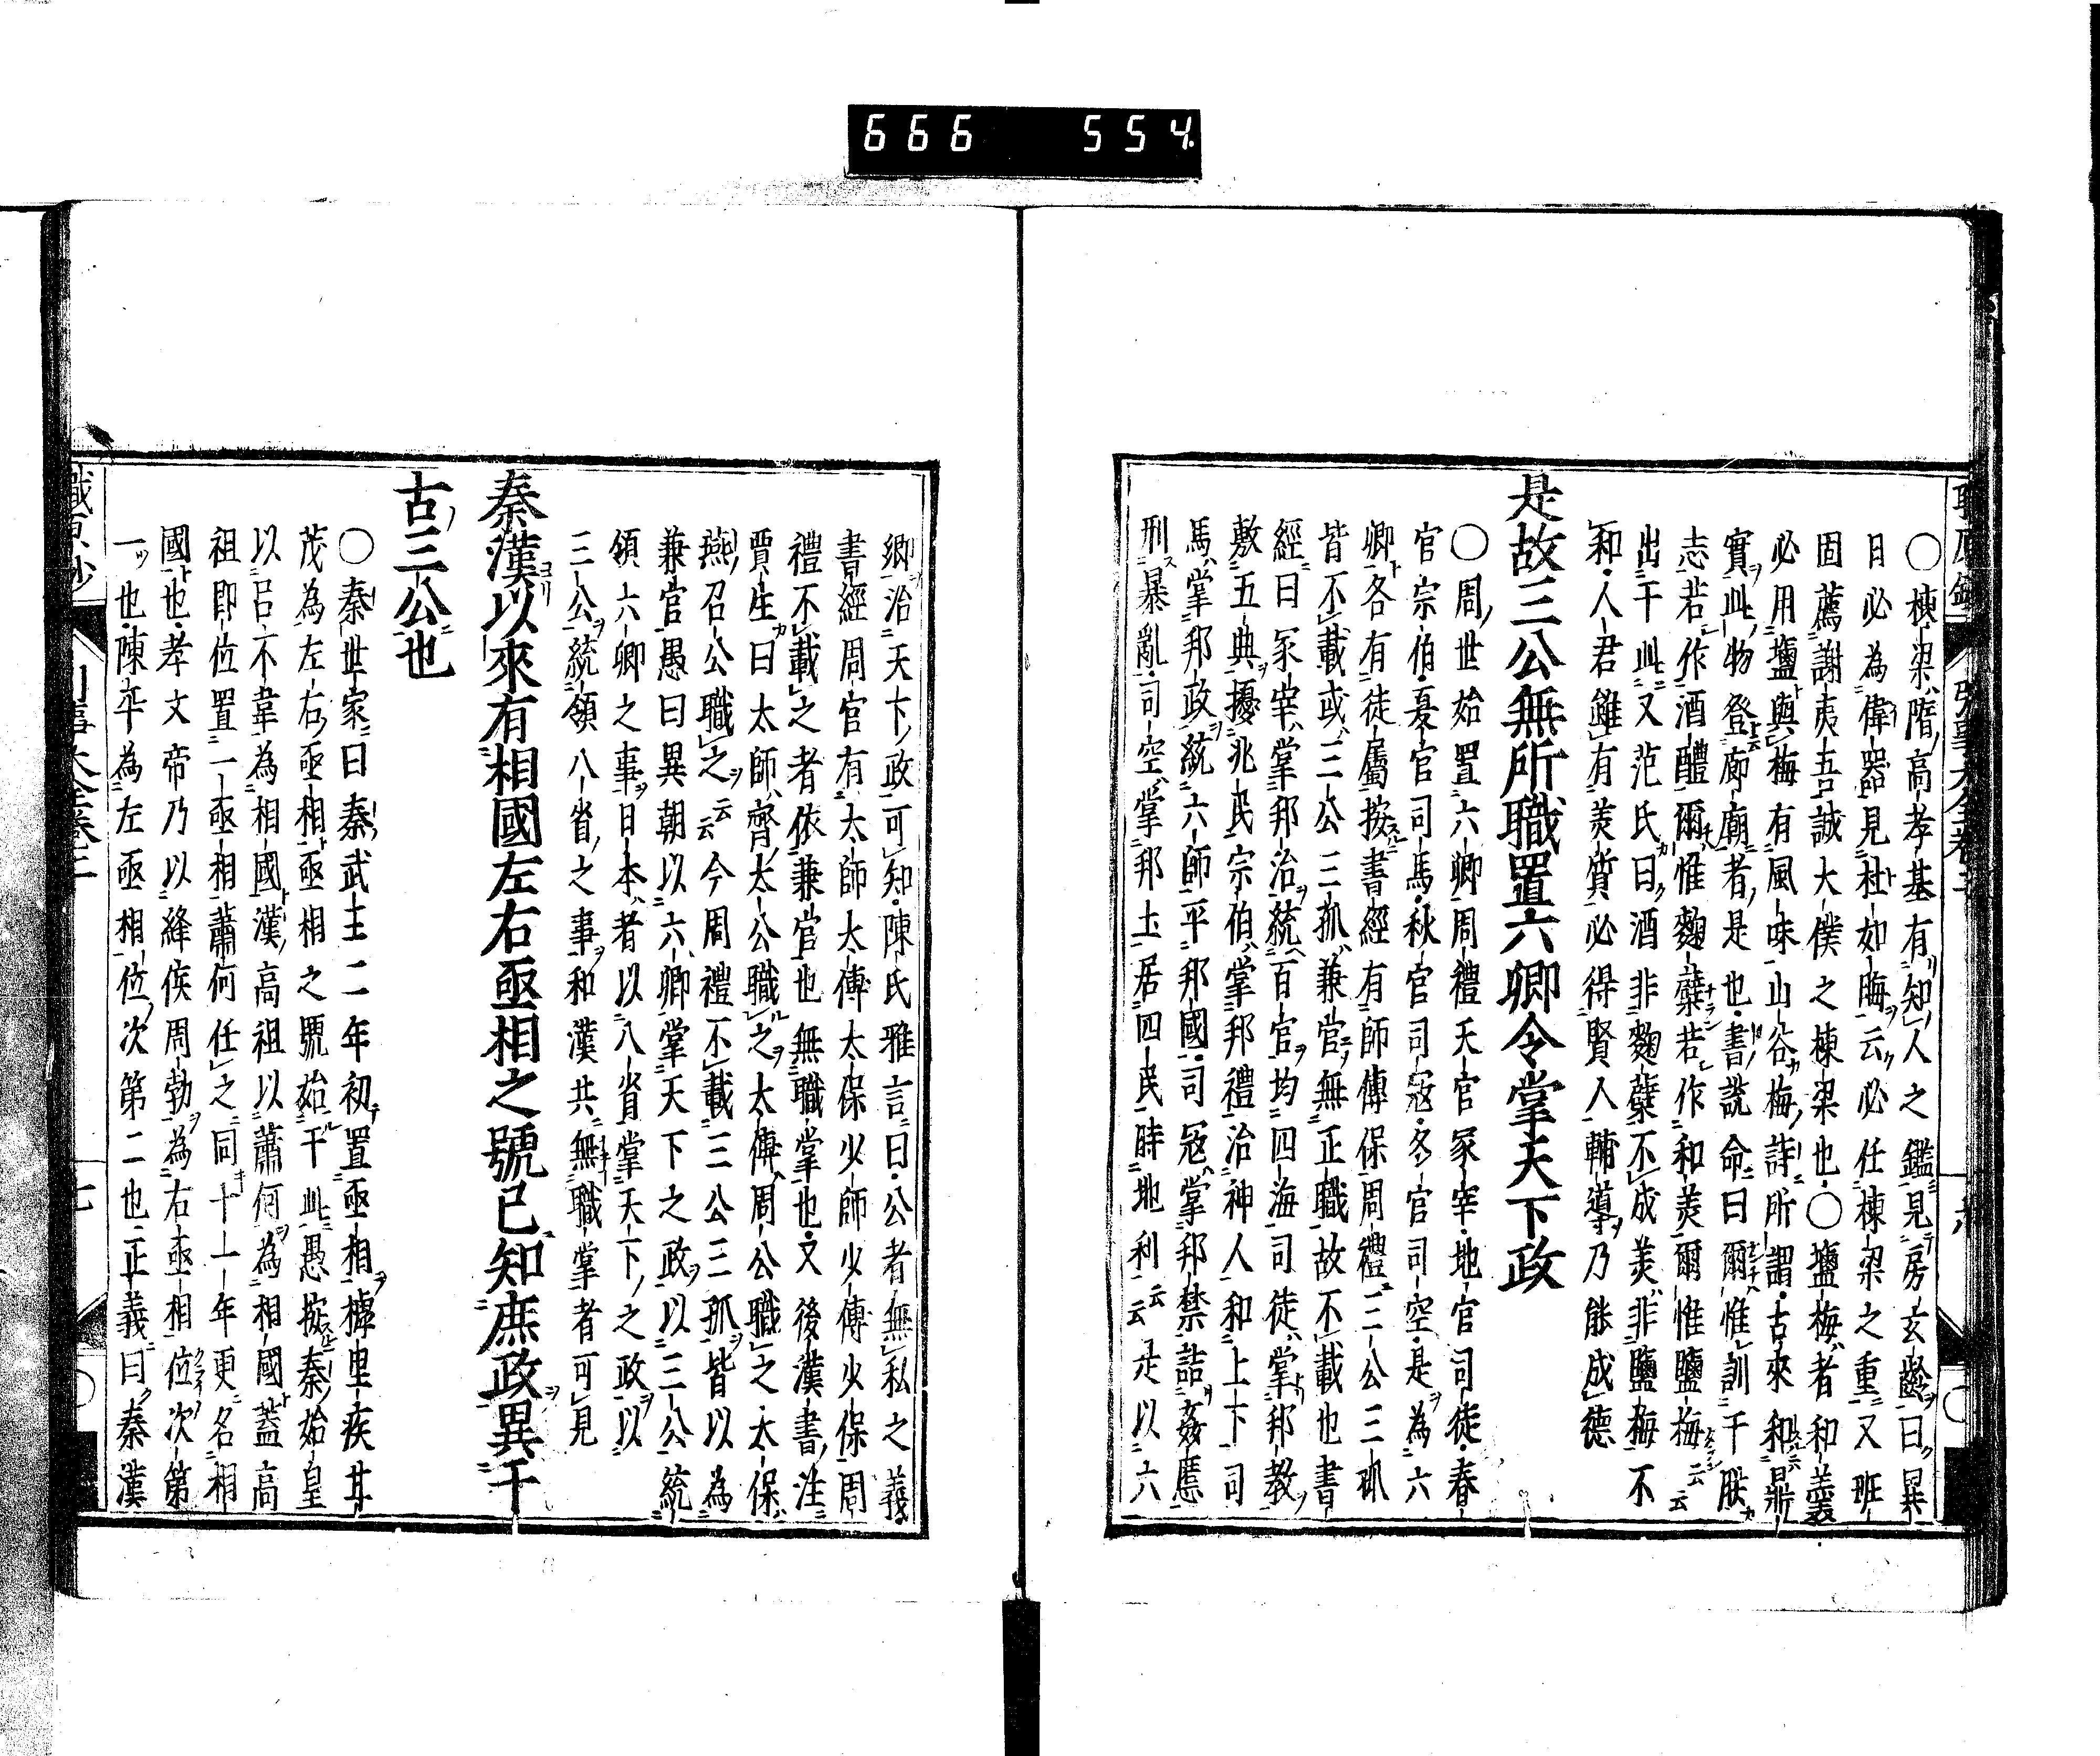 666 554
〇棟梁隋高孝基有知人之鑑見房玄齡曰異
日必為偉器見杜如晦云必任棟梁之重又班
固薦謝夷吾誠大僕之棟梁也〇塩梅者和羹
必用塩與梅有風味山谷梅詩所謂古來和鼎
實此物登廊廟者是也書說命曰爾惟訓于朕
志若作酒醴爾惟麴糵若作和羹爾惟鹽梅云云
出于此又范氏曰酒非麴糵不成羹非鹽梅不
和人君雖有美質必得賢人輔導乃能成德
是故三公無所職置六卿令掌天下政
〇周世始置六卿周禮天官冢宰地官司徒春
官宗伯夏官司馬秋官司寇冬官司空是為六
卿各有徒屬按書經有師傅保周禮三公三孤
皆不載或三公三孤兼官無正職故不載也書
經曰冢宰掌邦治統百官均四海司徒掌邦教
敷五典擾兆民宗伯掌邦禮治神人和上下司
馬掌邦政統六師平邦國司寇掌邦禁詰姦慝
刑暴亂司空掌邦土居四民時地利云云是以六
卿治天下政可知陳氏雅言曰公者無私之義
書經周官有太師太傅太保少師少傅少保周
禮不載之者依兼官也無職掌也又後漢書注
賈生曰太師齊太公職之太傅周公職之太保
燕召公職之云云今周禮不載三公三孤皆以為
兼官愚曰異朝以六卿掌天下之政以三公統
領六卿之事日本者以八省掌天下之政以
三公統領八省之事和漢共無職掌者可見
秦漢以來有相國左右亟相之號已知庶政異于
古三公也
〇秦世家曰秦武王二年初置亟相樗里疾甘
茂為左右亟相亟相之號始于此愚按秦始皇
以呂不韋為相國漢高祖以蕭何為相國蓋高
祖即位置一亟相蕭何任之同十一年更名相
國也孝文帝乃以絳侯周勃為右亟相位次第
一也陳平為左亟相位次第二也正義曰秦漢